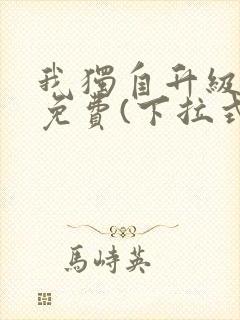 我獨自升級
免費(下拉式
馬峙英